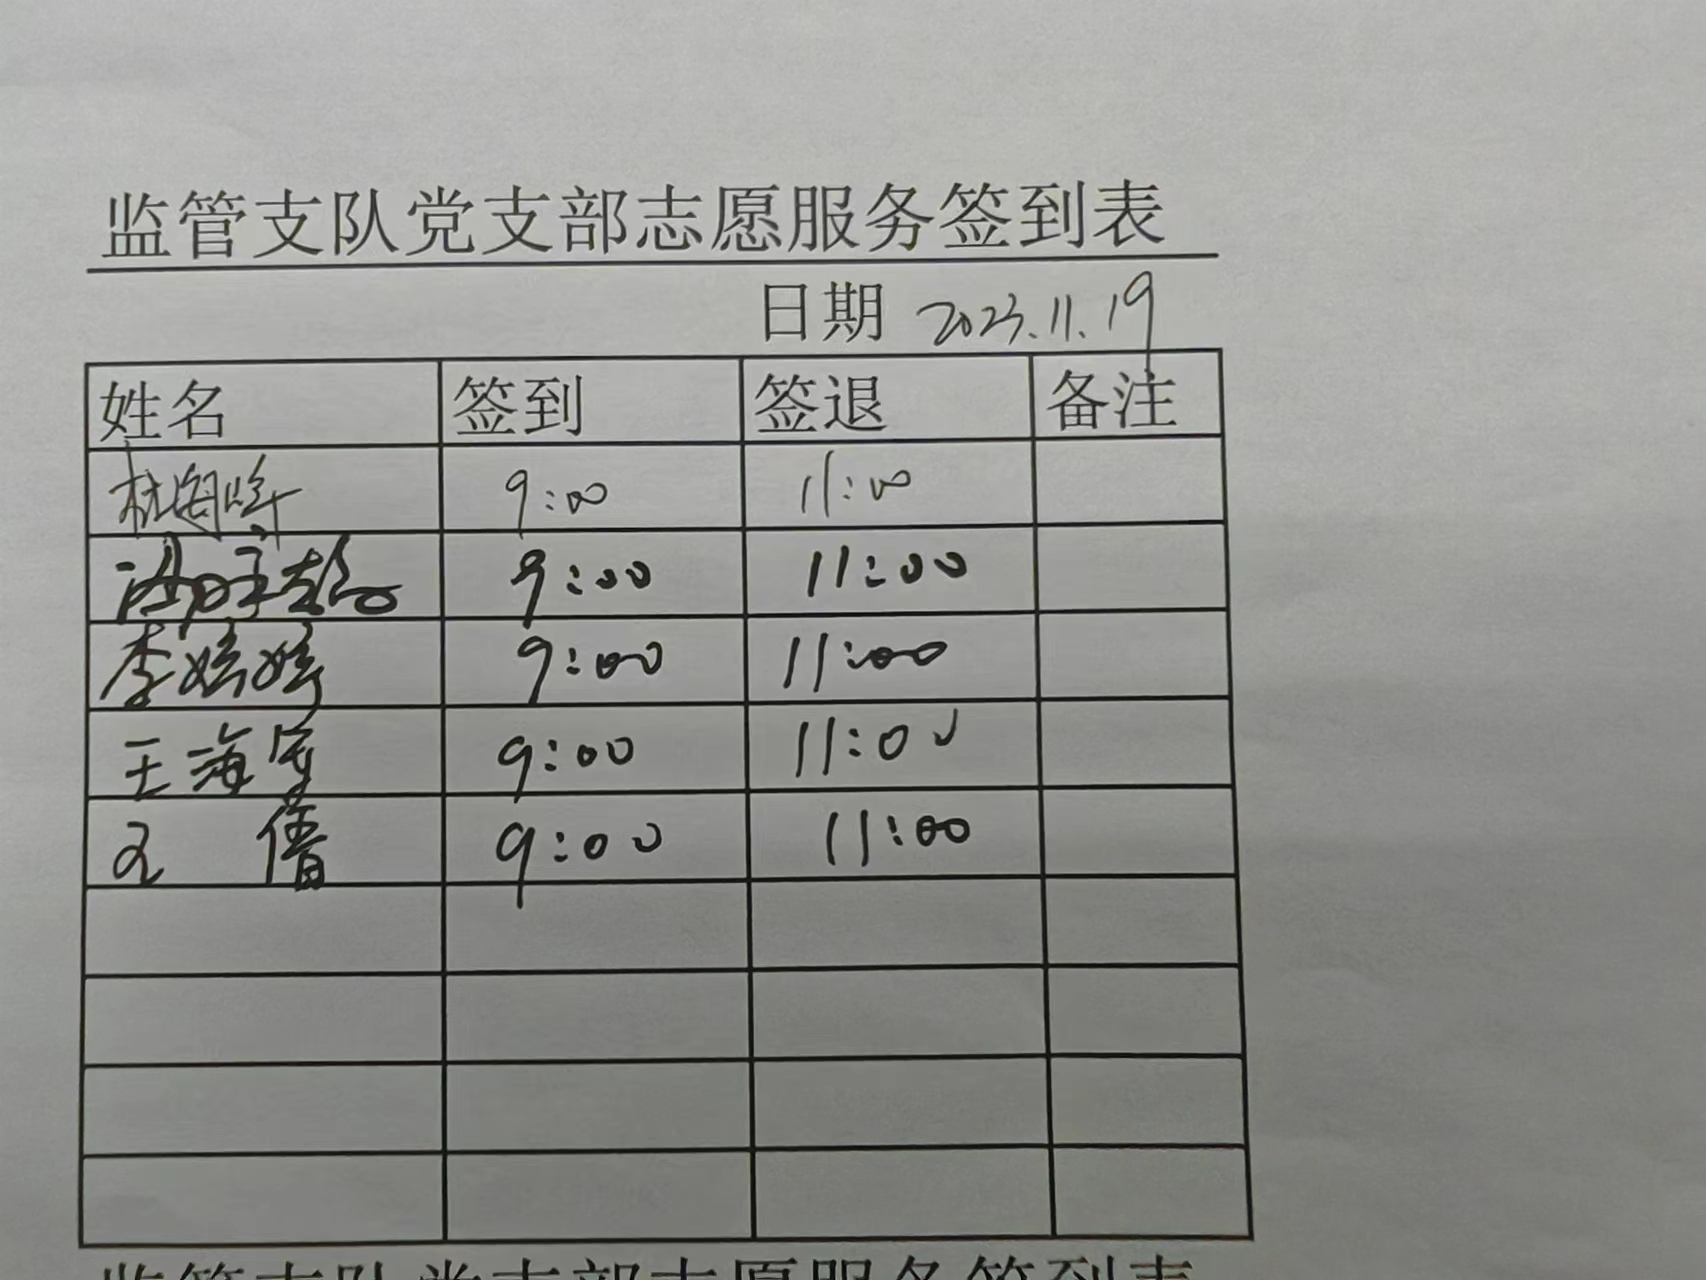 监管支队党支部志愿服务签到表
日期 2023.11.19
姓名 签到 签退 备注
9:00 11:00
9:00 11:00
李婷婷 9:00 11:00
王海军 9:00 11:00
王 9:00 11:00
监管支队党支部志愿服务签到表